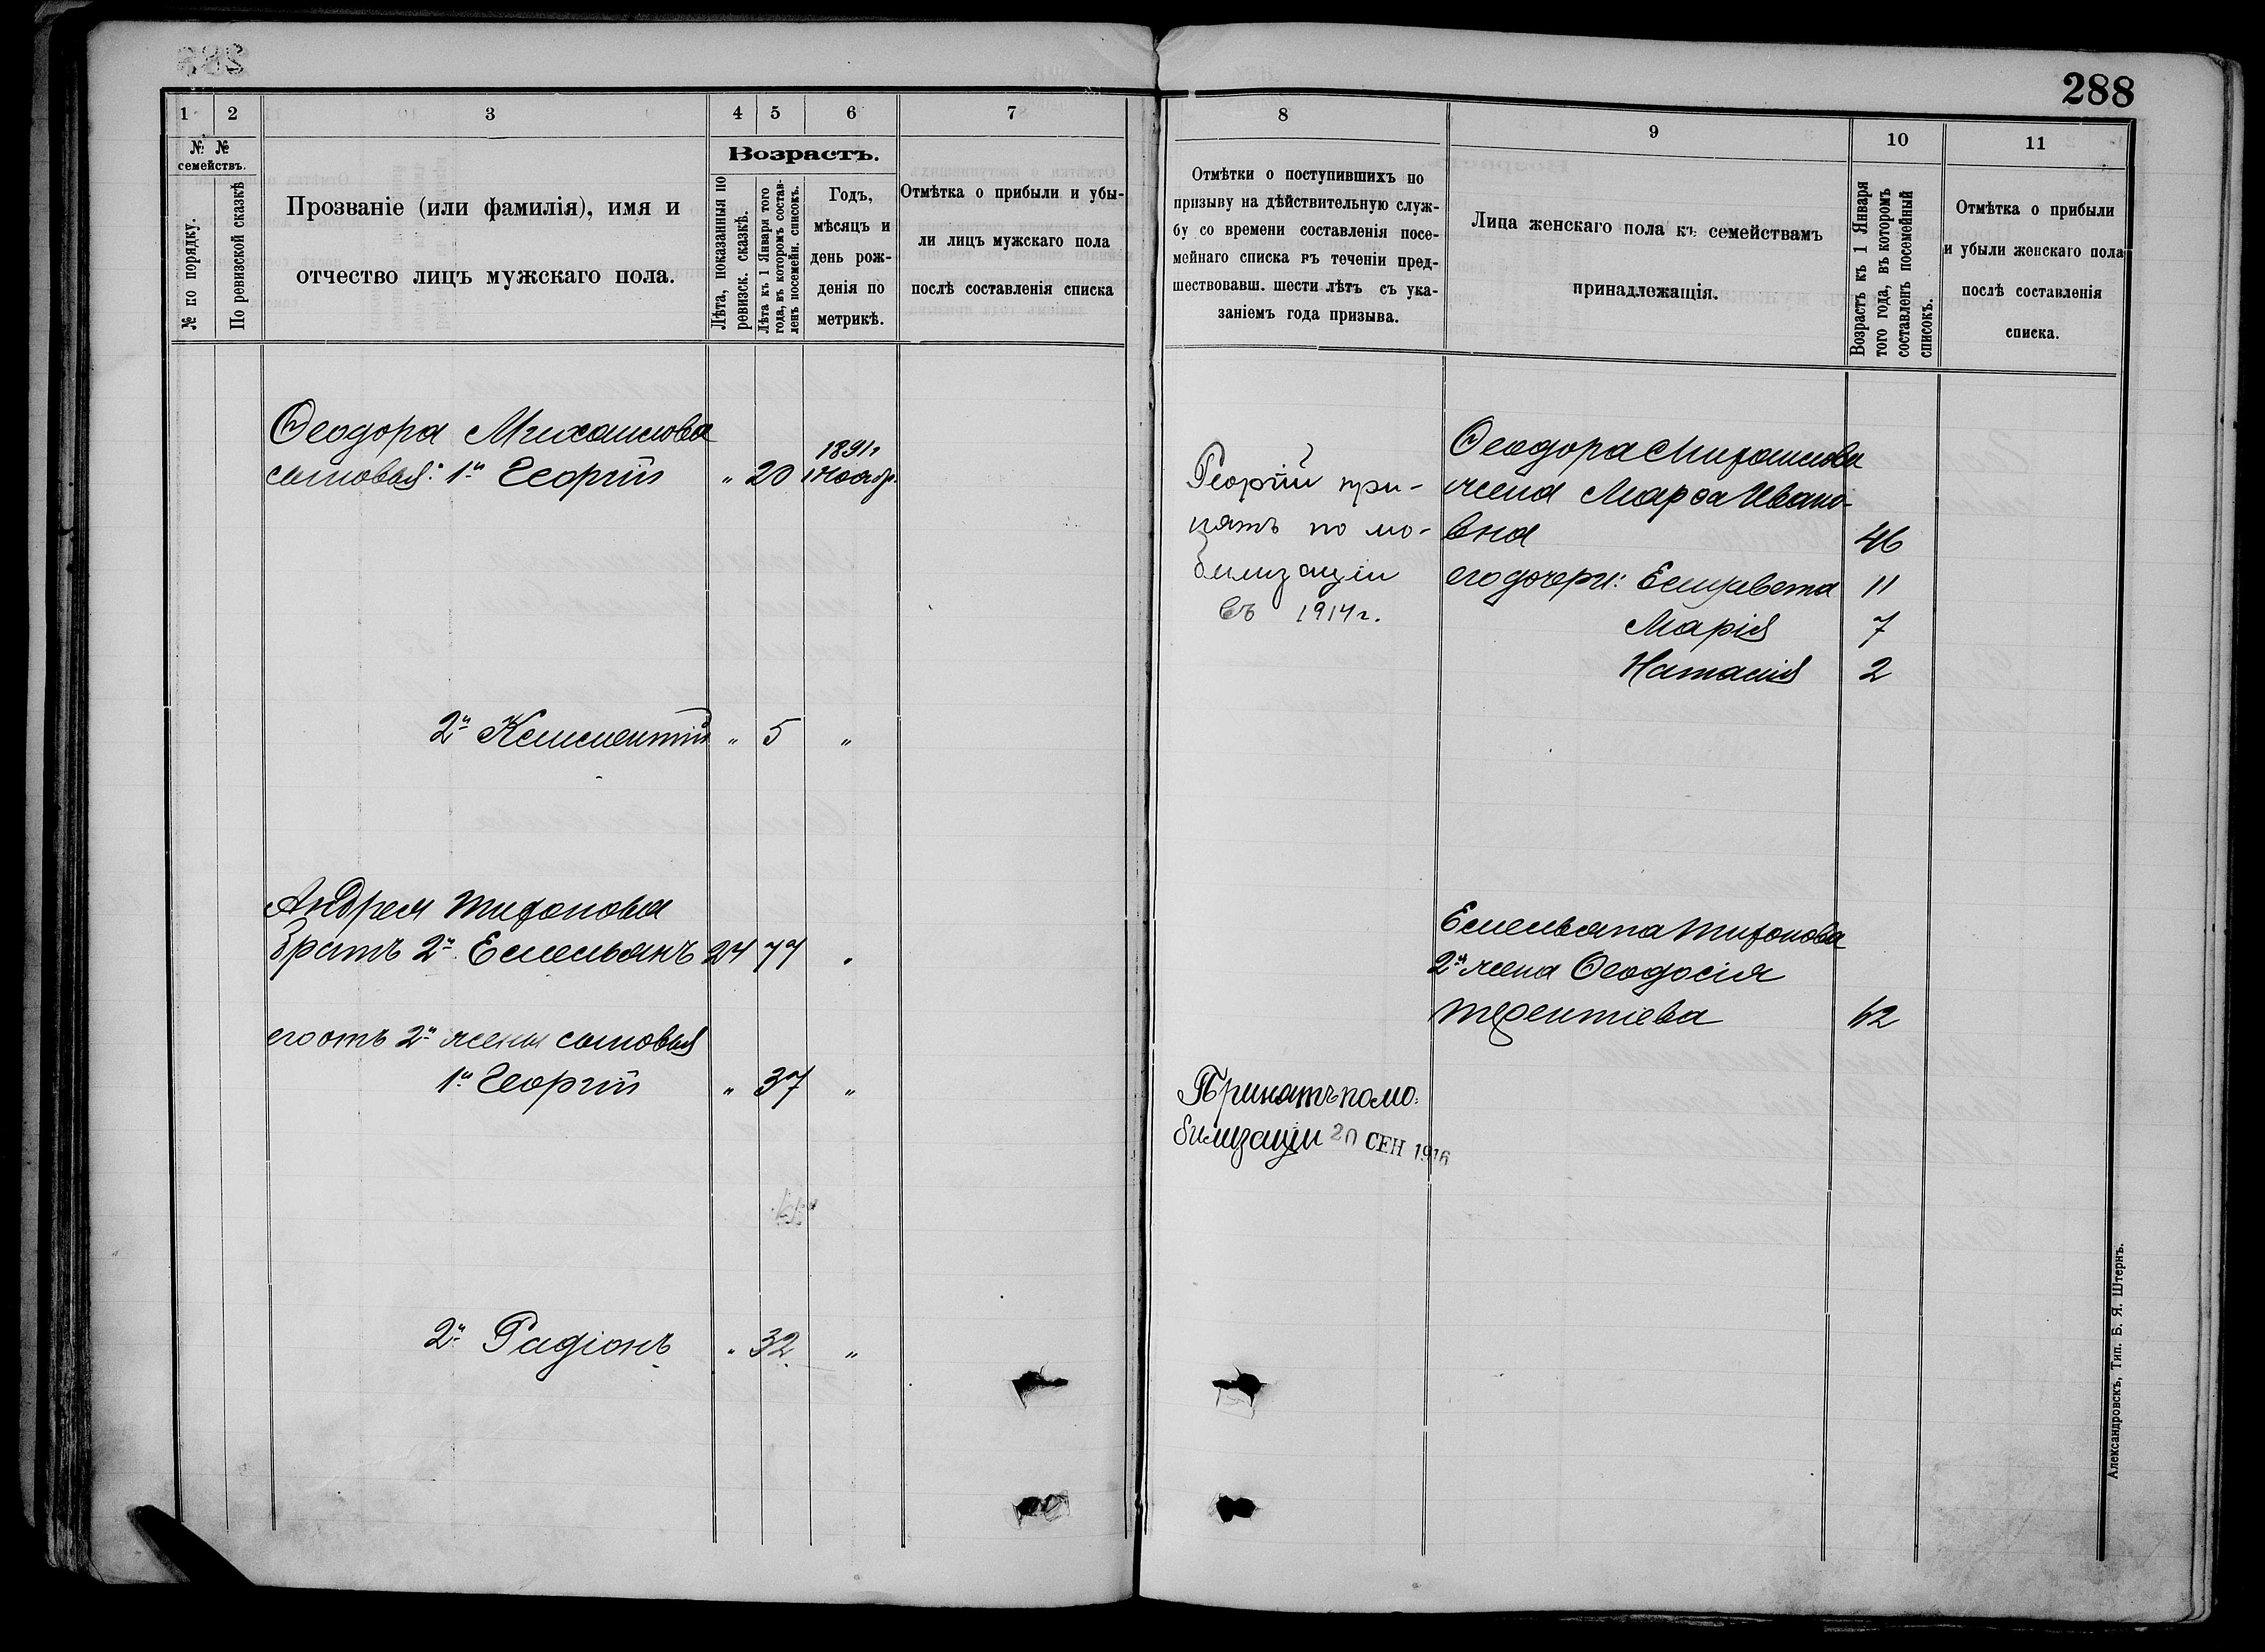 288
1
2
3
4
5
6
7
№ №
семействъ.
№ по порядку.
По ревизской сказкѣ
Прозваніе (или фамилія), имя и
отчество лицъ мужскаго пола.
Возрастъ.
Лѣта, показанныя по
ревизск. сказкѣ.
Лѣта къ 1 Января того
года, въ которомъ состав-
ленъ посемейн. списокъ.
Годъ,
мѣсяцъ и
день рож-
денія по
метрикѣ.
Отмѣтка о прибыли и убы-
ли лицъ мужскаго пола
послѣ составленія списка
Ѳеодора Михаилова
1891г
сыновья: 1й Георгій " 20 1 Ноябр.
2й Климентій " 5 "
Андрея Тихонова
братъ 2й Емельянъ 24 77 "
его отъ 2й жены сыновья
1й Георгій " 37 "
2й Радіонъ " 32 "
8
9
10
11
Отмѣтки о поступившихъ по
призыву на дѣйствительную служ-
бу со времени составленія посе-
мейнаго списка въ теченіи пред-
шествовавш. шести лѣтъ съ ука-
заніемъ года призыва.
Лица женскаго пола къ семействамъ
принадлежащія.
Возрастъ къ 1 Января
того года, въ которомъ
составленъ посемейный
списокъ.
Отмѣтка о прибыли
и убыли женскаго пола
послѣ составленія
списка.
Георгій при-
нятъ по мо-
билизаціи
въ 1914г.
Ѳеодора Михаилова
жена Марѳа Ивано-
вна 46
его дочери: Елизавета 11
Марія 7
Наталія 2
Емельяна Тихонова
2я жена Ѳеодосія
Терентіева 62
Принятъ по мо-
билизаціи 20 СЕН 1916
Александровскъ, Тип. Б. Я. Штернъ.